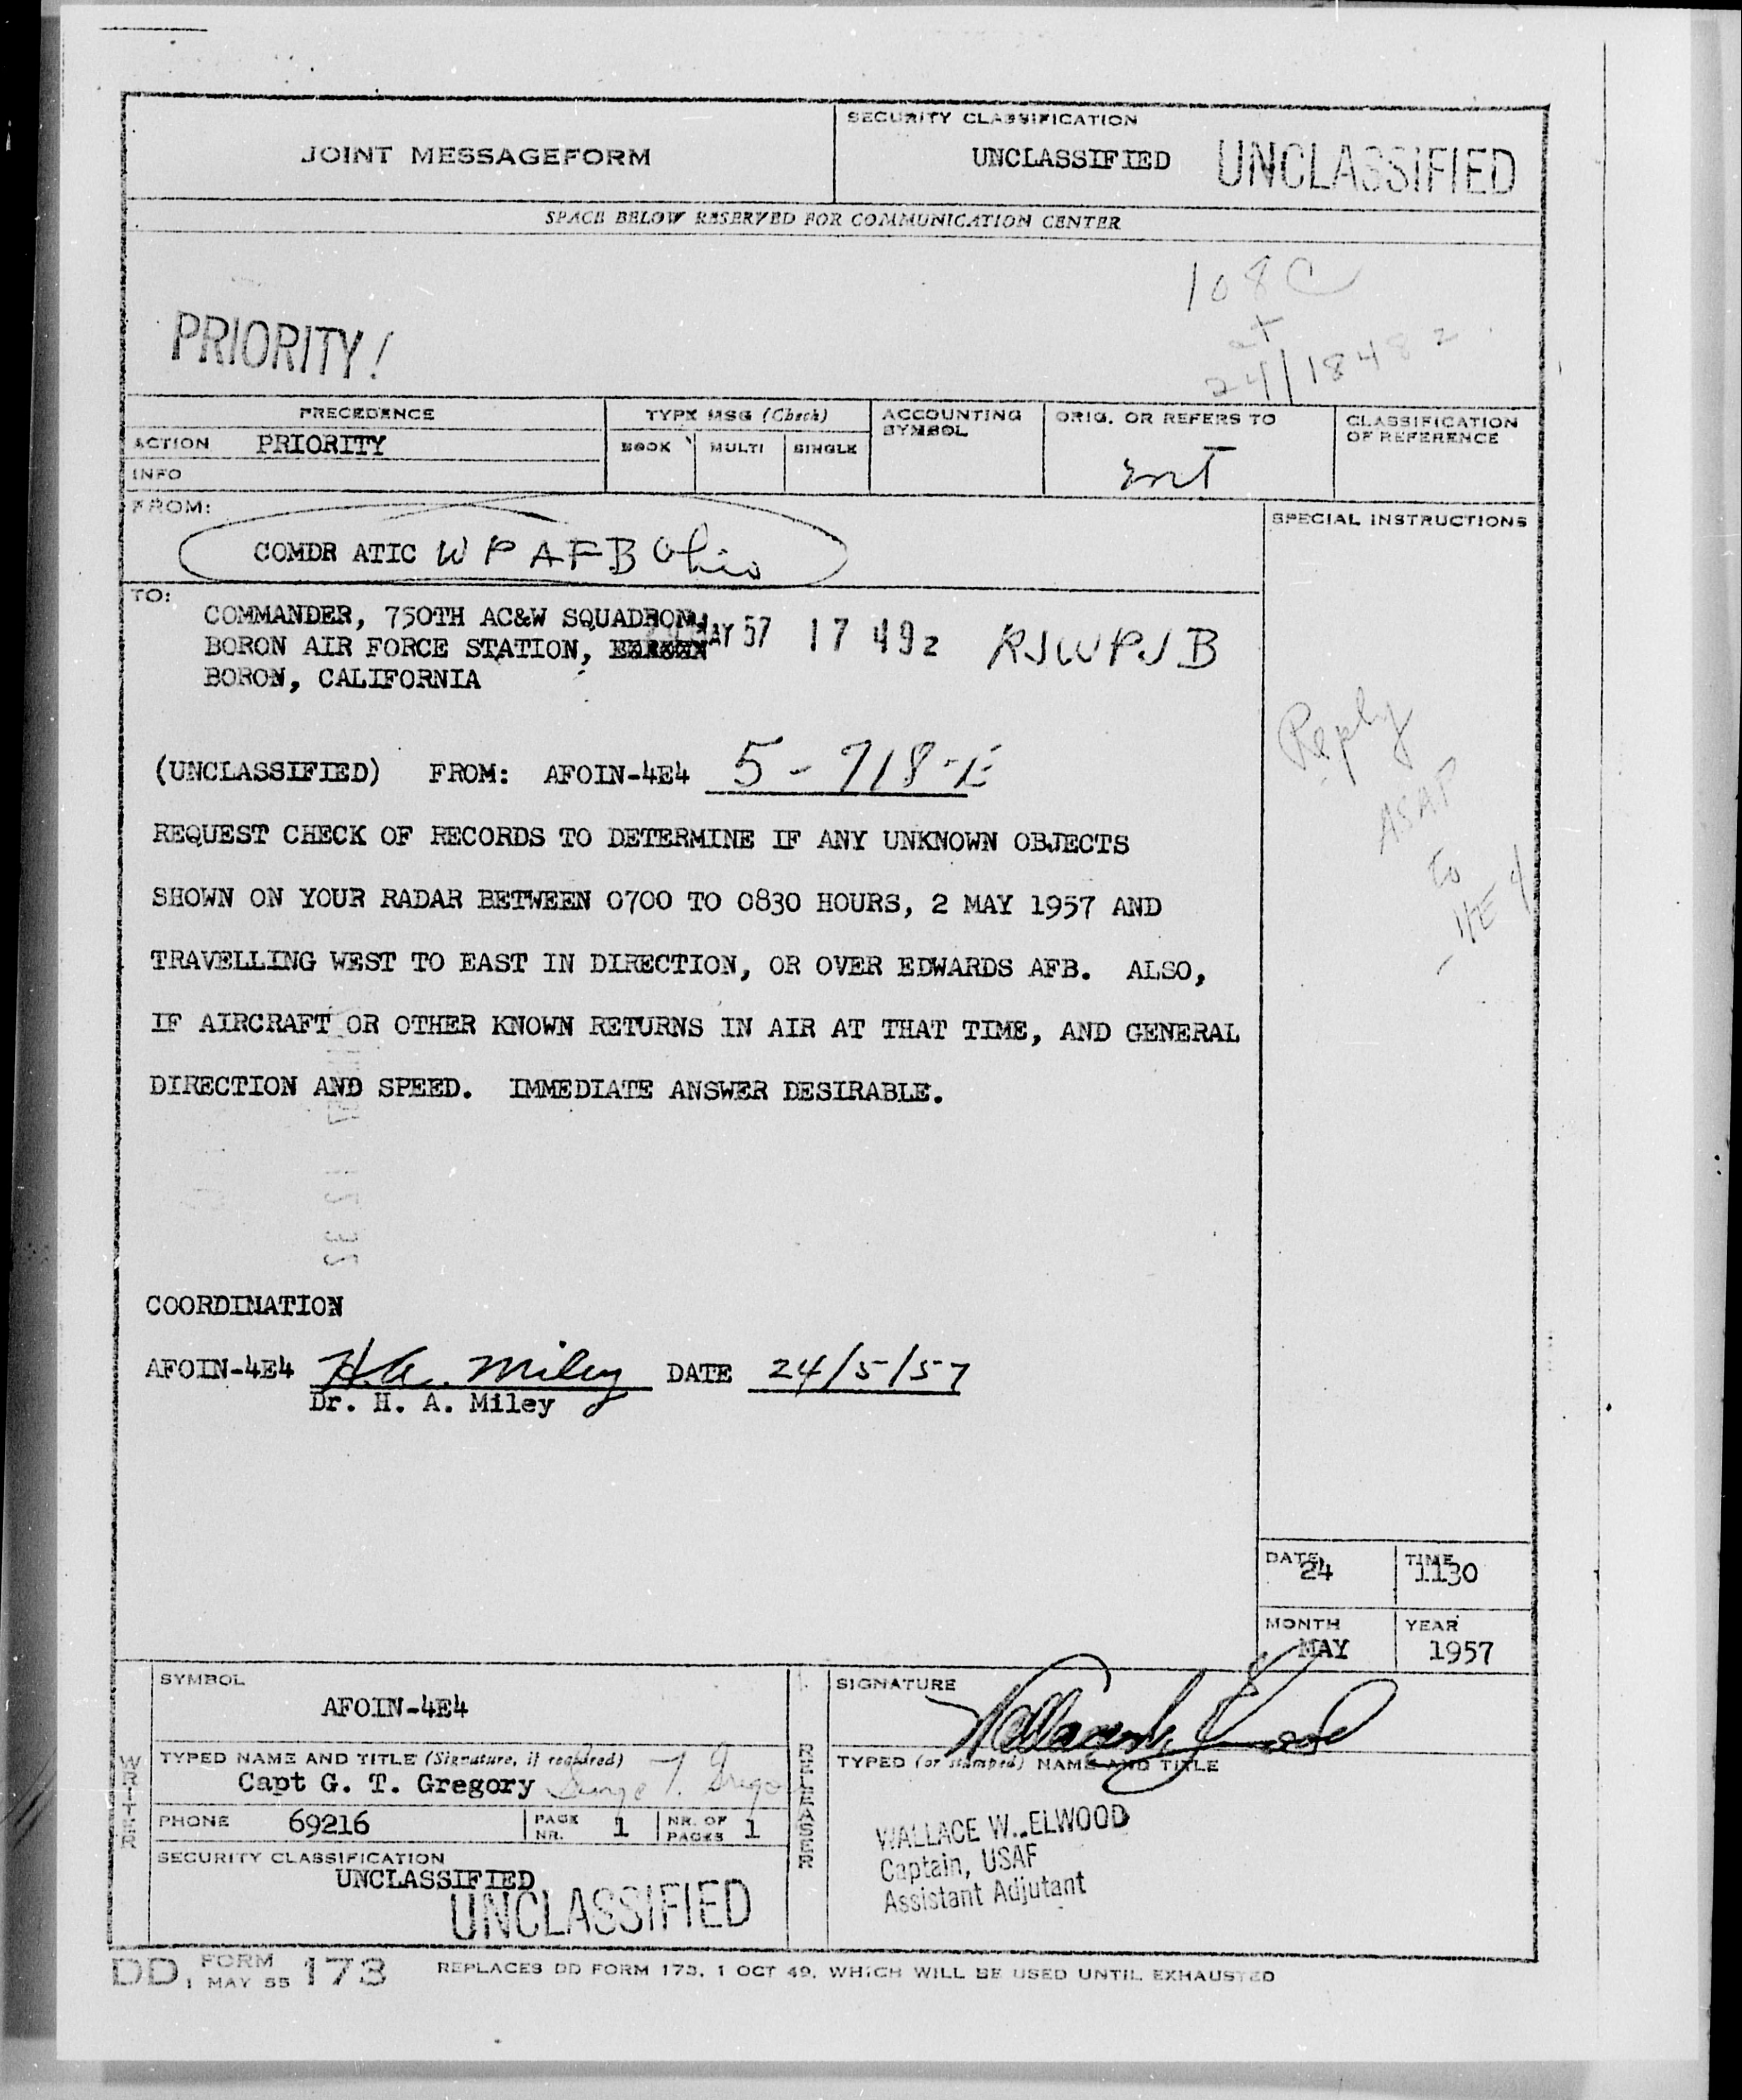 JOINT MESSAGEFORM
SECURITY CLASSIFICATION
UNCLASSIFIED UNCLASSIFIED
SPACE BELOW RESERVED FOR COMMUNICATION CENTER
108C
PRIORITY!
24/1848z
PRECEDENCE
TYPE MSG (Check)
ACCOUNTING SYMBOL
ORIG. OR REFERS TO
CLASSIFICATION OF REFERENCE
ACTION PRIORITY
BOOK MULTI SINGLE
INFO
FROM:
SPECIAL INSTRUCTIONS
COMDR ATIC WPAFB Ohio
TO:
COMMANDER, 750TH AC&W SQUADRON,
BORON AIR FORCE STATION,
MAY 57 17 49z RJWPJB
BORON, CALIFORNIA
Reply
ASAP
to
4E4
(UNCLASSIFIED) FROM: AFOIN-4E4 5-718-E
REQUEST CHECK OF RECORDS TO DETERMINE IF ANY UNKNOWN OBJECTS
SHOWN ON YOUR RADAR BETWEEN 0700 TO 0830 HOURS, 2 MAY 1957 AND
TRAVELLING WEST TO EAST IN DIRECTION, OR OVER EDWARDS AFB. ALSO,
IF AIRCRAFT OR OTHER KNOWN RETURNS IN AIR AT THAT TIME, AND GENERAL
DIRECTION AND SPEED. IMMEDIATE ANSWER DESIRABLE.
COORDINATION
AFOIN-4E4 H.A. Miley DATE 24/5/57
Dr. H. A. Miley
DATE 24
TIME 1130
MONTH MAY
YEAR 1957
WRITER
SYMBOL
AFOIN-4E4
TYPED NAME AND TITLE (Signature, if required)
Capt G. T. Gregory George T. Grego
PHONE 69216
PAGE NR. 1
NR. OF PAGES 1
SECURITY CLASSIFICATION
UNCLASSIFIED
UNCLASSIFIED
RELEASER
SIGNATURE
Wallace W. Elwood
TYPED (or stamped) NAME AND TITLE
WALLACE W. ELWOOD
Captain, USAF
Assistant Adjutant
DD FORM 1 MAY 55 173 REPLACES DD FORM 173, 1 OCT 49, WHICH WILL BE USED UNTIL EXHAUSTED